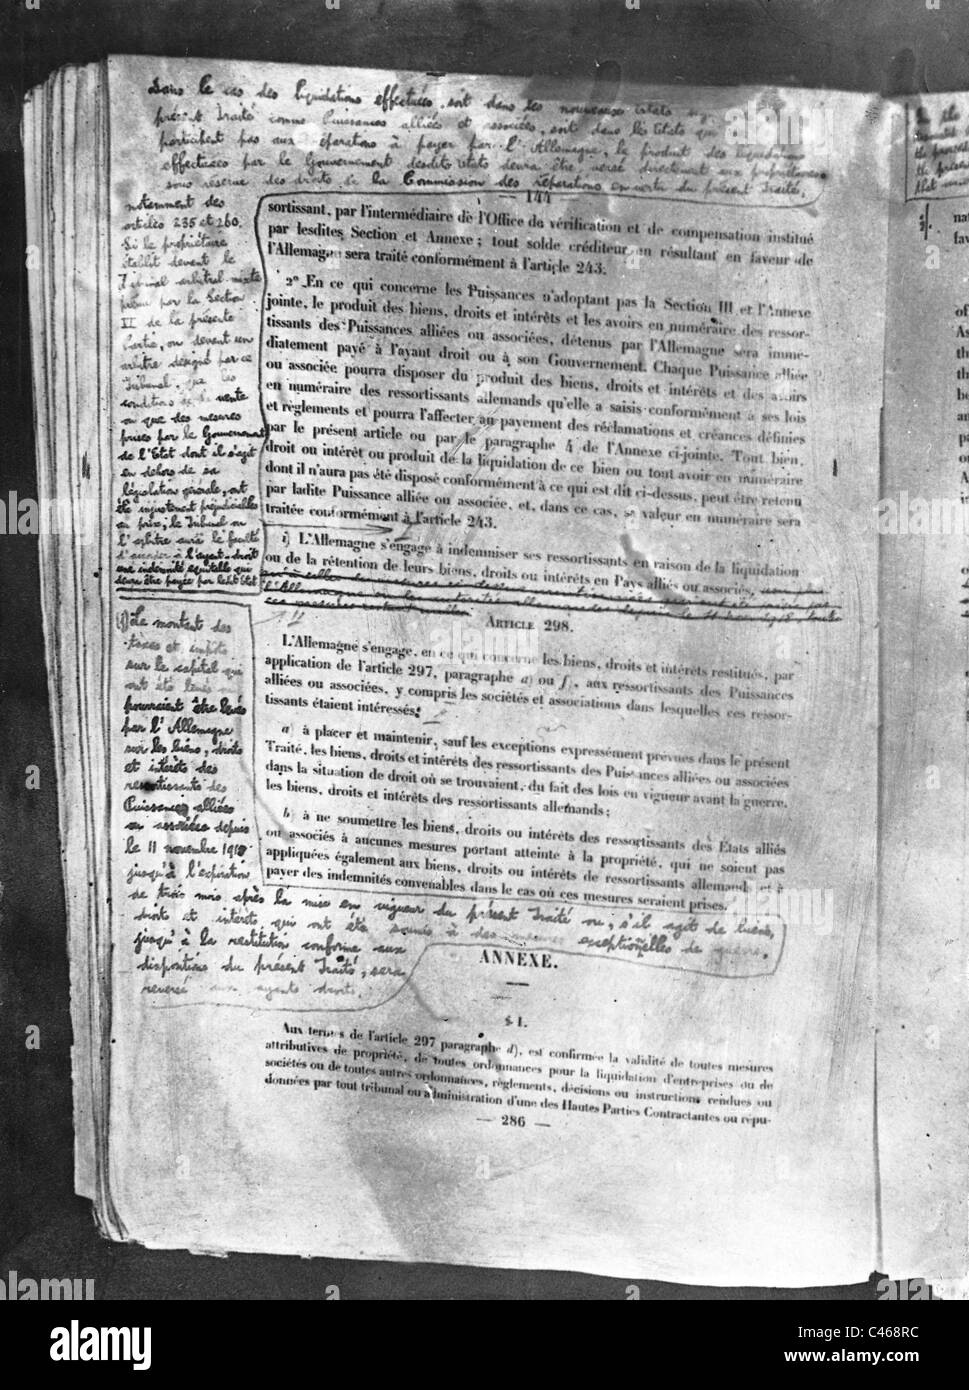 Dans le cas des liquidations effectuées, soit dans les nouveaux Etats
présent Traité comme Puissances alliées et associées, soit dans les Etats qui
participent pas aux réparations à payer par l'Allemagne, le produit des liquidations
effectuées par le Gouvernement desdits Etats devra être versé directement aux propriétaires
sous réserve des droits de la Commission des réparations en vertu du présent Traité,
notamment des
articles 235 et 260.
Si le propriétaire
établit devant le
Tribunal arbitral mixte
prévu par la Section
VI de la présente
Partie, ou devant un
arbitre désigné par ce
Tribunal, que les
conditions de la vente
ou que des mesures
prises par le Gouvernement
de l'Etat dont il s'agit
en dehors de sa
législation générale, ont
été injustement préjudiciables
au prix, le Tribunal ou
l'arbitre aura la faculté
d'accorder à l'ayant-droit
une indemnité équitable qui
devra être payée par ledit Etat
— 144 —
sortissant, par l'intermédiaire de l'Office de vérification et de compensation institué
par lesdites Section et Annexe; tout solde créditeur en résultant en faveur de
l'Allemagne sera traité conformément à l'article 243.
2° En ce qui concerne les Puissances n'adoptant pas la Section III et l'Annexe
jointe, le produit des biens, droits et intérêts et les avoirs en numéraire des ressor-
tissants des Puissances alliées ou associées, détenus par l'Allemagne sera immé-
diatement payé à l'ayant droit ou à son Gouvernement. Chaque Puissance alliée
ou associée pourra disposer du produit des biens, droits et intérêts et des avoirs
en numéraire des ressortissants allemands qu'elle a saisis conformément à ses lois
et règlements et pourra l'affecter au payement des réclamations et créances définies
par le présent article ou par le paragraphe 4 de l'Annexe ci-jointe. Tout bien,
droit ou intérêt ou produit de la liquidation de ce bien ou tout avoir en numéraire
dont il n'aura pas été disposé conformément à ce qui est dit ci-dessus, peut être retenu
par ladite Puissance alliée ou associée, et, dans ce cas, sa valeur en numéraire sera
traitée conformément à l'article 243.
i) L'Allemagne s'engage à indemniser ses ressortissants en raison de la liquidation
ou de la rétention de leurs biens, droits ou intérêts en Pays alliés ou associés,
ARTICLE 298.
L'Allemagne s'engage, en ce qui concerne les biens, droits et intérêts restitués, par
application de l'article 297, paragraphe a) ou f), aux ressortissants des Puissances
alliées ou associées, y compris les sociétés et associations dans lesquelles ces ressor-
tissants étaient intéressés:
a) à placer et maintenir, sauf les exceptions expressément prévues dans le présent
Traité, les biens, droits et intérêts des ressortissants des Puissances alliées ou associées
dans la situation de droit où se trouvaient, du fait des lois en vigueur avant la guerre,
les biens, droits et intérêts des ressortissants allemands;
b) à ne soumettre les biens, droits ou intérêts des ressortissants des États alliés
ou associés à aucunes mesures portant atteinte à la propriété, qui ne soient pas
appliquées également aux biens, droits ou intérêts de ressortissants allemands et à
payer des indemnités convenables dans le cas où ces mesures seraient prises.
j) Le montant des
taxes et impôts
sur le capital qui
ont été levés ou
pourraient être levés
par l'Allemagne
sur les biens, droits
et intérêts des
ressortissants des
Puissances alliées
ou associées depuis
le 11 novembre 1918
jusqu'à l'expiration
de trois mois après la mise en vigueur du présent Traité ou, s'il agit de biens,
droits et intérêts qui ont été soumis à des mesures exceptionnelles de guerre,
jusqu'à la restitution conforme aux
dispositions du présent Traité, sera
reversé aux ayants droits.
ANNEXE.
§ 1.
Aux termes de l'article 297 paragraphe d), est confirmée la validité de toutes mesures
attributives de propriété, de toutes ordonnances pour la liquidation d'entreprises ou de
sociétés ou de toutes autres ordonnances, règlements, décisions ou instructions rendues ou
données par tout tribunal ou administration d'une des Hautes Parties Contractantes ou répu-
— 286 —
alamy
Image ID: C468RC
www.alamy.com